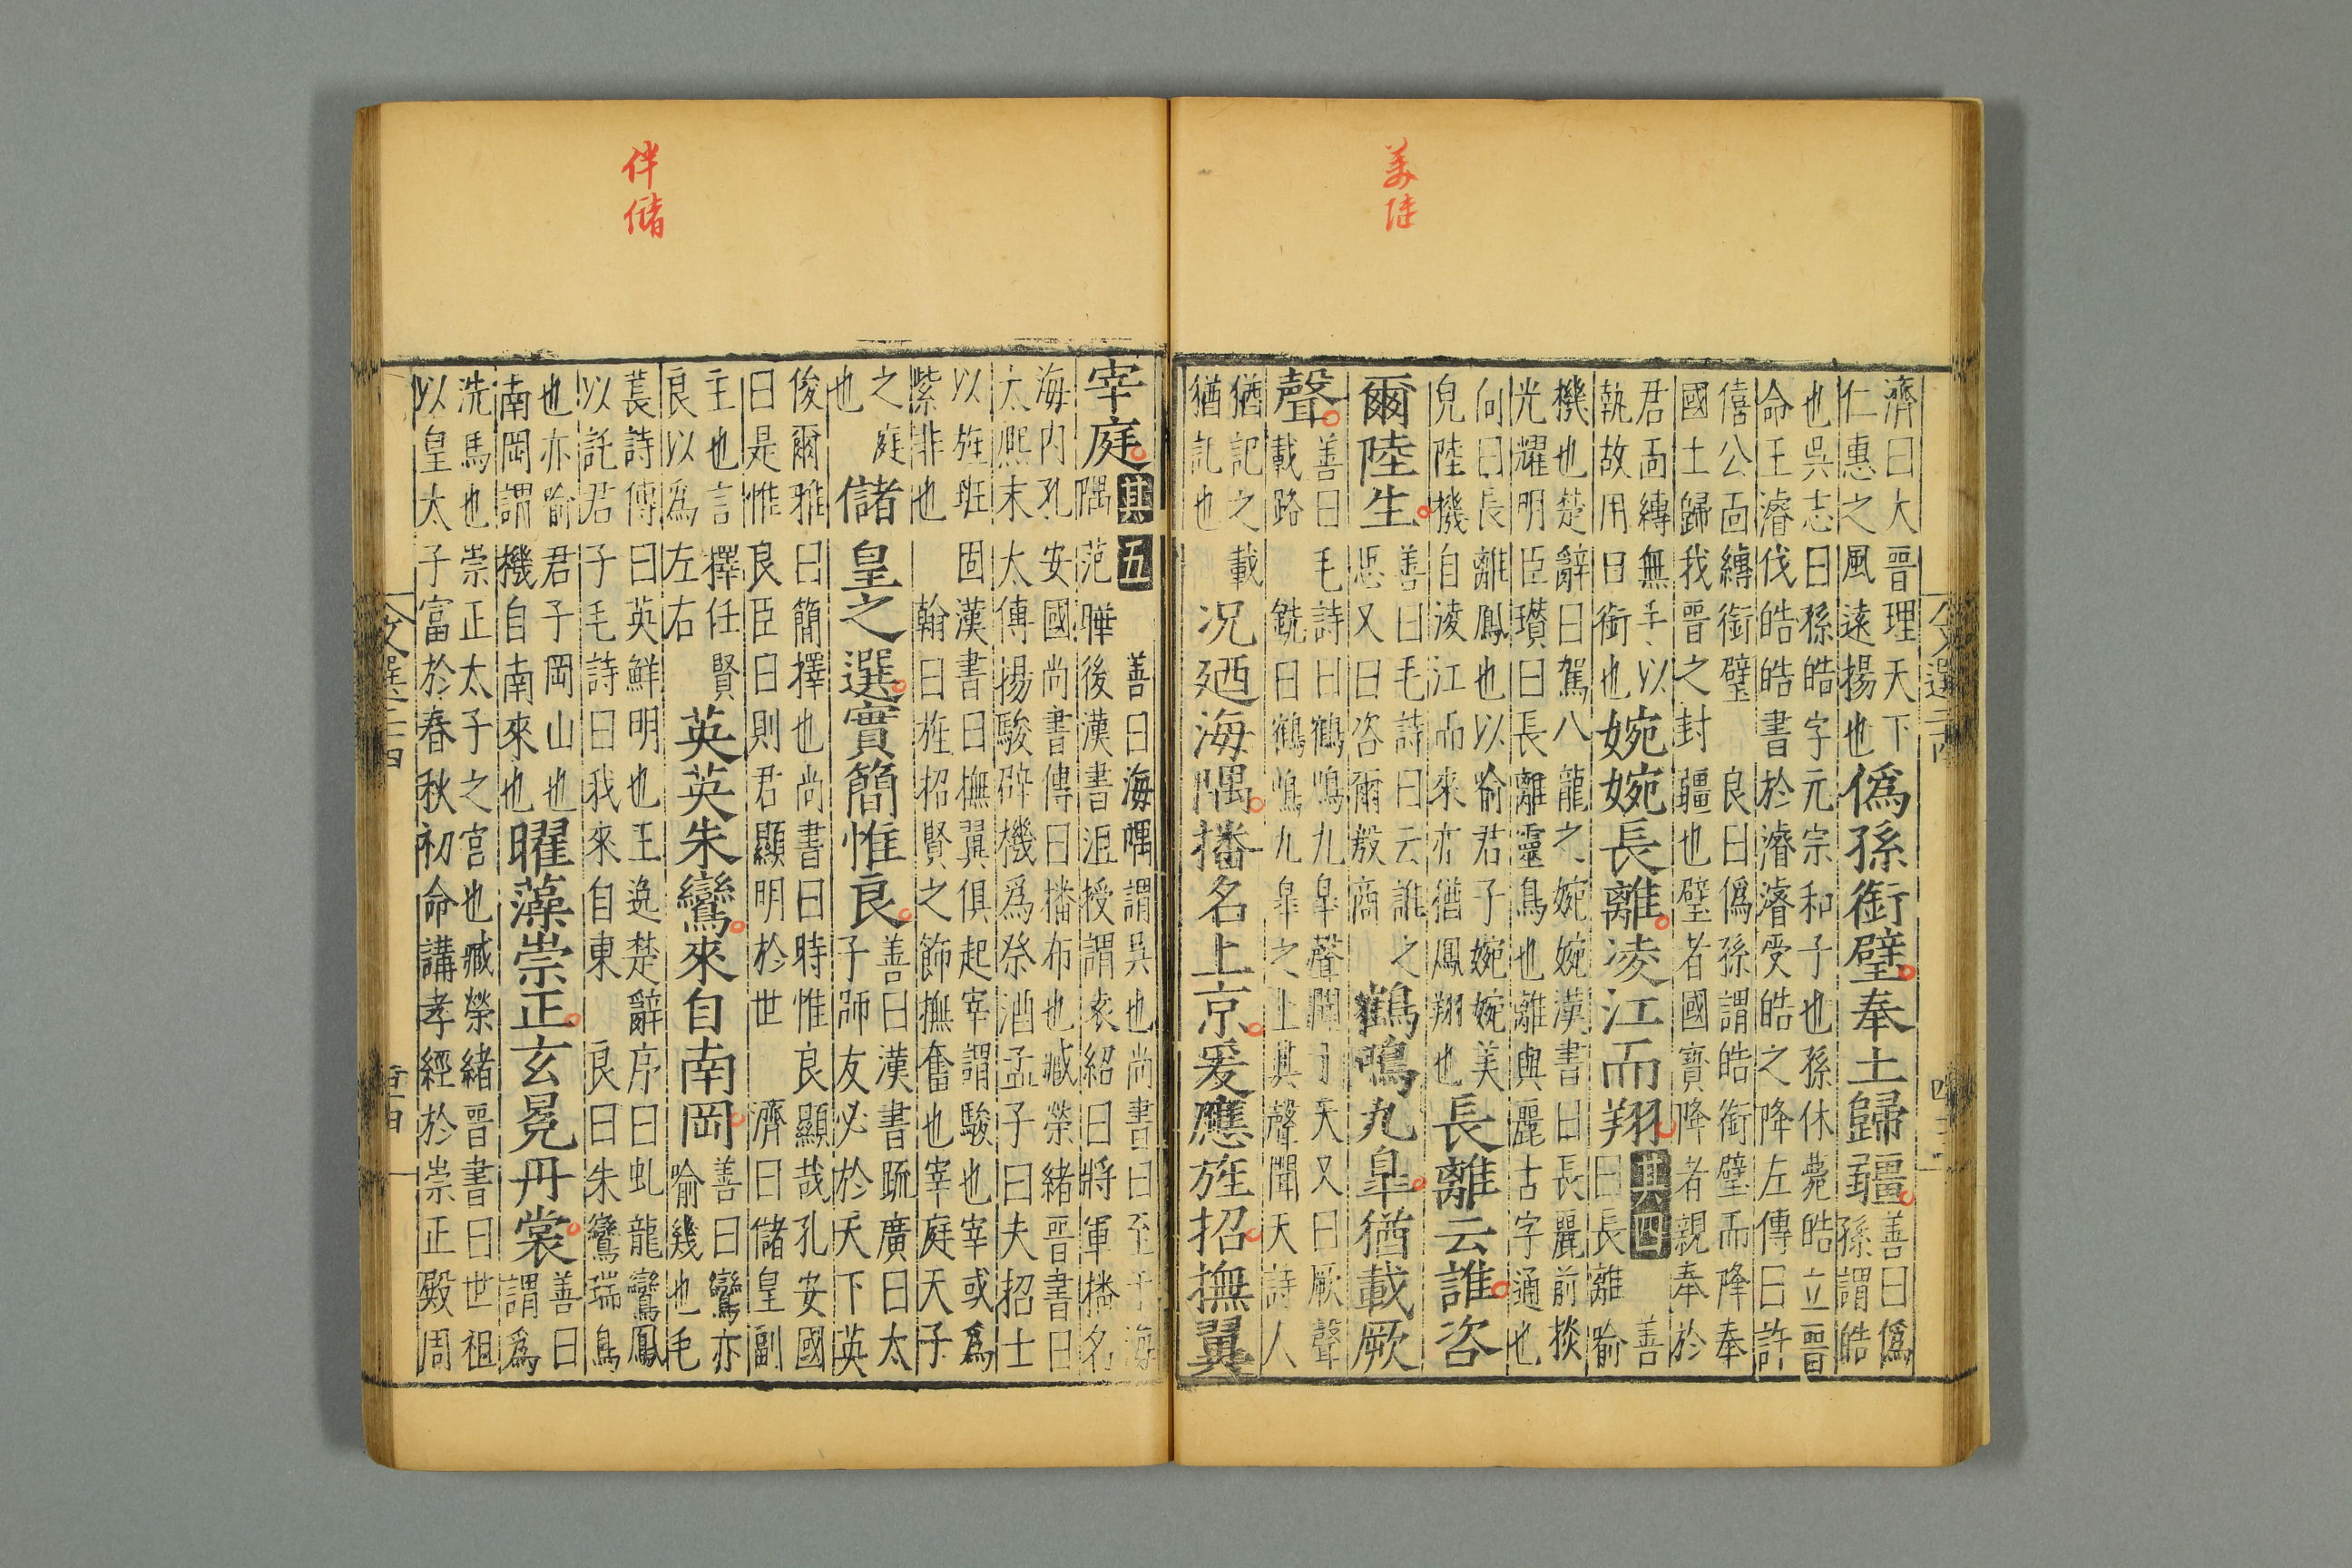 美陸
濟曰大晉理天下
仁惠之風遠揚也
僞孫銜璧奉土歸疆
善曰僞
孫謂皓
也吳志曰孫皓字元宗和子也孫休薨皓立晉
命王濬伐皓皓書於濬濬受皓之降左傳曰許
僖公面縛銜璧 良曰僞孫謂皓銜璧而降奉
國土歸我晉之封疆也璧者國寶降者親奉於
君面縛無手以
執故用口銜也
婉婉長離凌江而翔其四
善
曰長離喻
機也楚辭曰駕八龍之婉婉漢書曰長麗前掞
光耀明臣瓚曰長離靈鳥也離與麗古字通也
向曰長離鳳也以喻君子婉婉美
皃陸機自凌江而來亦猶鳳翔也
長離云誰咨
爾陸生
善曰毛詩曰云誰之
思又曰咨爾殷商
鶴鳴九皐猶載厥
聲
善曰毛詩曰鶴鳴九皐聲聞于天又曰厥聲
載路 銑曰鶴鳴九皐之上其聲聞天詩人
猶記之載
猶記也
況廼海隅播名上京爰應旌招撫翼
伴儲
宰庭其五
善曰海隅謂吳也尚書曰至于海
隅范曄後漢書沮授謂袁紹曰將軍播名
海內孔安國尚書傳曰播布也臧榮緒晉書曰
太熙末太傅揚駿辟機爲祭酒孟子曰夫招士
以旌班固漢書曰撫翼俱起宰謂駿也宰或爲
紫非也 翰曰旌招賢之飾撫奮也宰庭天子
之庭
也
儲皇之選實簡惟良
善曰漢書疏廣曰太
子師友必於天下英
俊爾雅曰簡擇也尚書曰時惟良顯哉孔安國
曰是惟良臣曰則君顯明於世 濟曰儲皇副
主也言擇任賢
良以爲左右
英英朱鸞來自南岡
善曰鸞亦
喻幾也毛
萇詩傳曰英鮮明也王逸楚辭序曰虬龍鸞鳳
以託君子毛詩曰我來自東 良曰朱鸞瑞鳥
也亦喻君子岡山也
南岡謂機自南來也
曜藻崇正玄冕丹裳
善曰
謂爲
洗馬也崇正太子之宮也臧榮緒晉書曰世祖
以皇太子富於春秋初命講孝經於崇正殿周